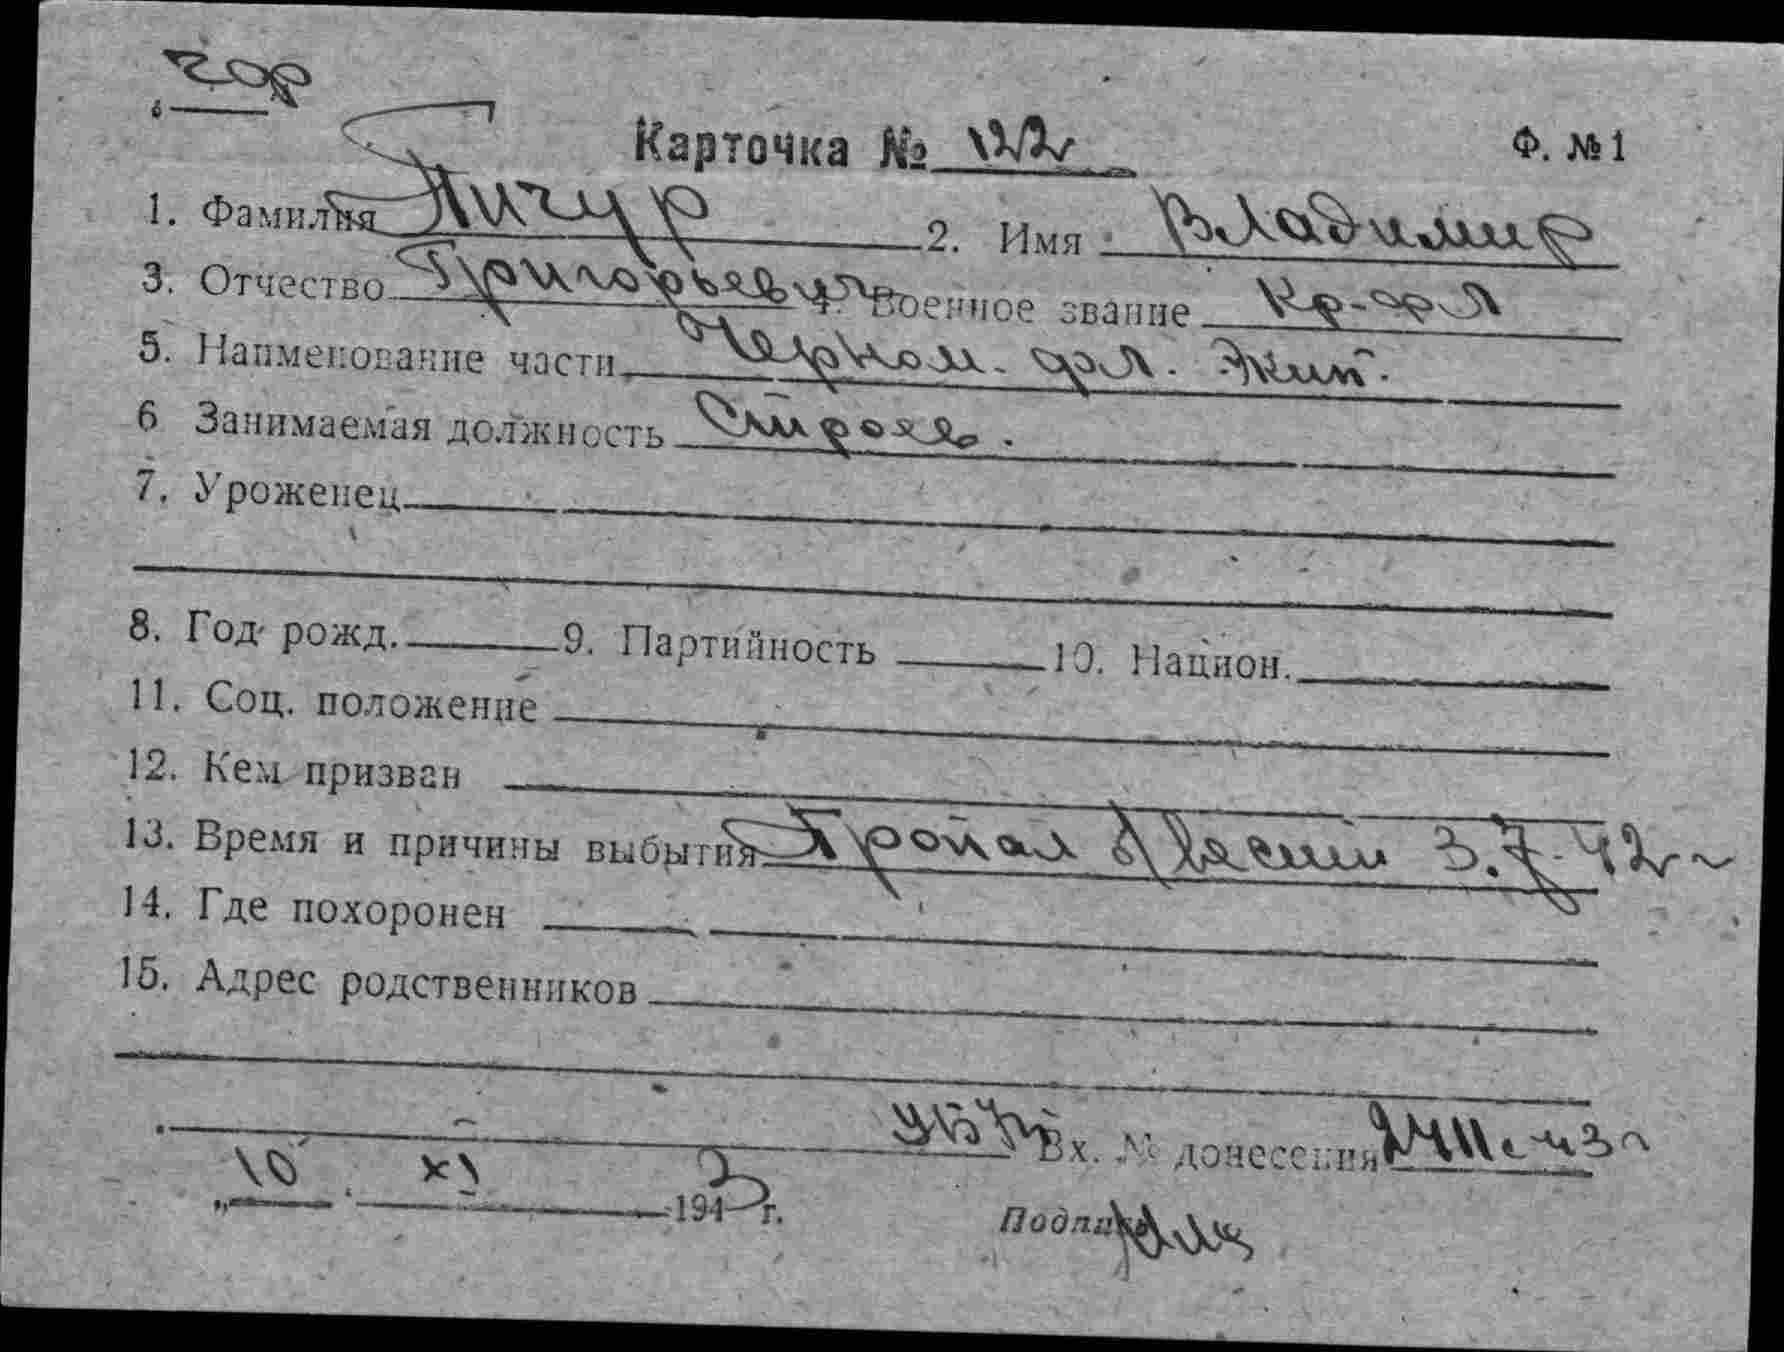 Карточка № 122 Ф. № 1
1. Фамилия Пичур 2. Имя Владимир
3. Отчество Григорьевич 4. Военное звание кр-фл
5. Наименование части Черном. фл. Экип.
6 Занимаемая должность Строев.
7. Уроженец
8. Год рожд. 9. Партийность 10. Национ.
11. Соц. положение
12. Кем призван
13. Время и причины выбытия Пропал без вести 3.7.42г
14. Где похоронен
15. Адрес родственников
Вх. № донесения
„10 XI 1943 г.
Подпись